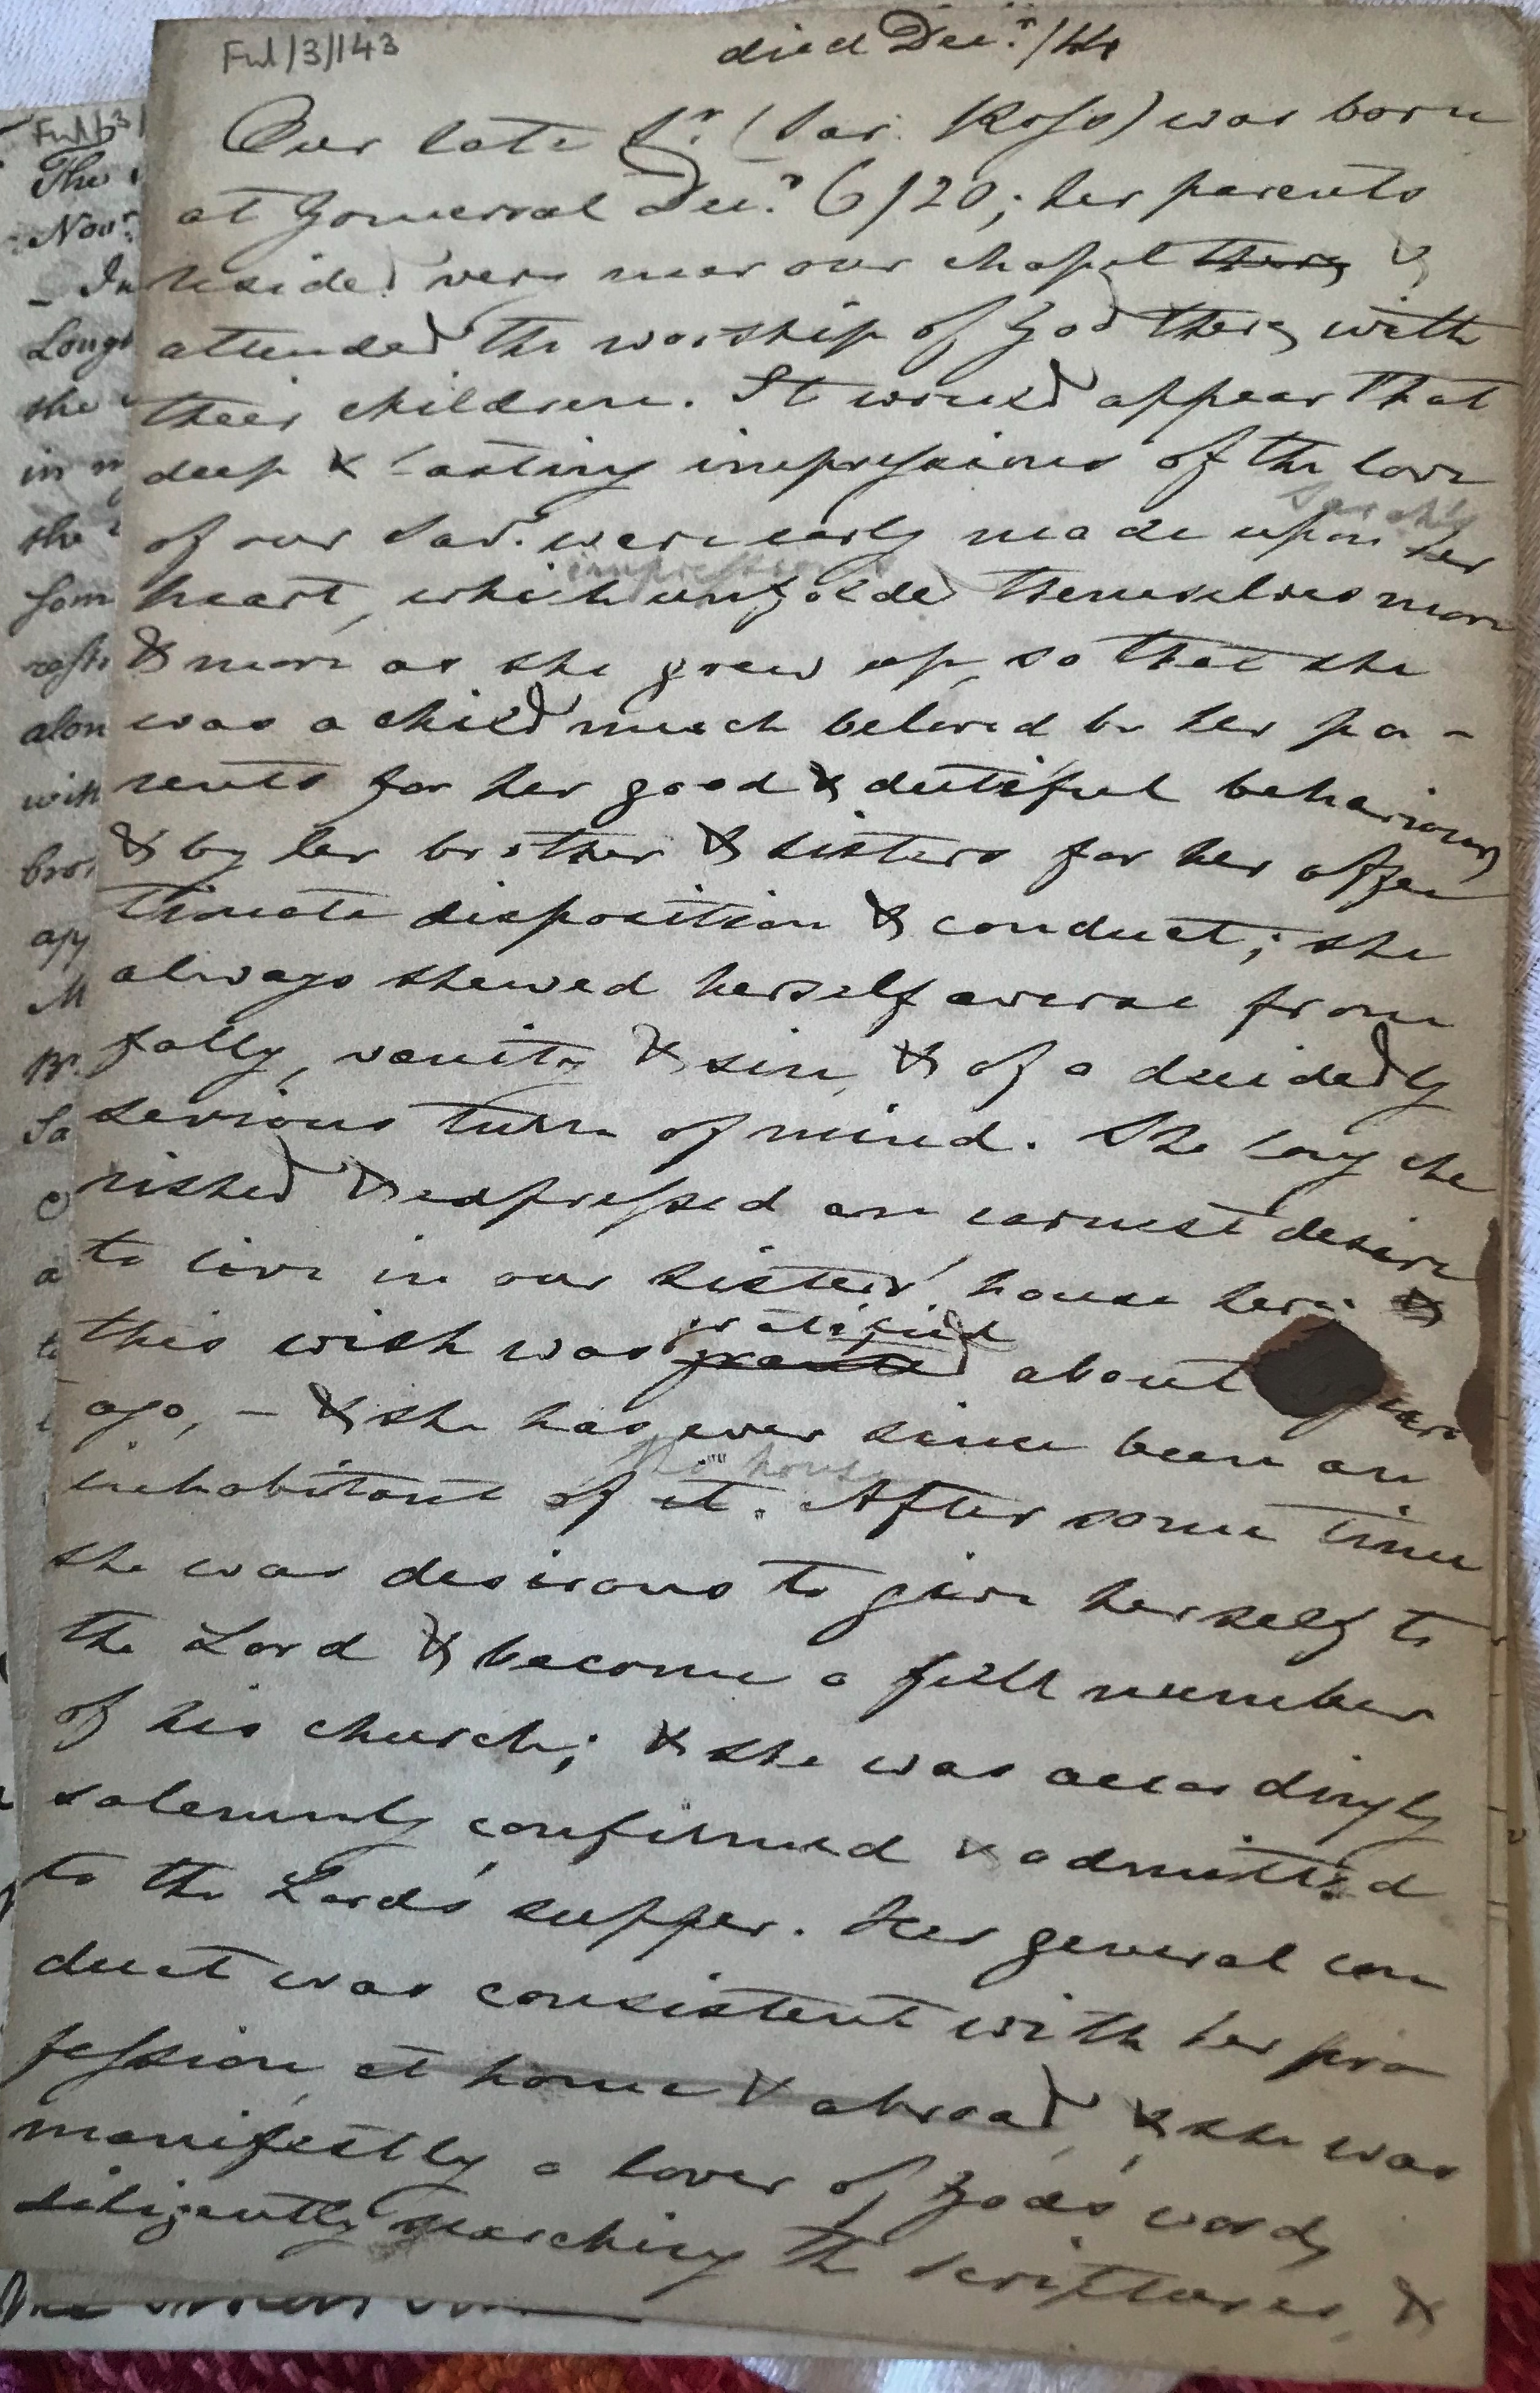 Ful/3/143
died Decr. /44
Our late Sr. (Sar. Ross) was born
at Gomersal Decr. 6/20; her parents
resided very near our chapel there &
attended the worship of God there, with
their children. It would appear that
deep & lasting impressions of the love
Sarah's
of our Savr. were early made upon her
impressions
heart, which unfolded themselves more
& more as she grew up, so that she
was a child much beloved by her pa-
rents for her good & dutiful behaviour,
& by her brother & sisters for her affec
tionate disposition & conduct; she
always shewed herself averse from
folly, vanity & sin, & of a decidedly
serious turn of mind. She long che
rished & expressed an earnest desire
to live in our sisters' house here; &
gratified
this wish was granted about years
ago, - & she has ever since been an
the house
inhabitant of it. After some time
she was desirous to give herself to
the Lord & become a full member
of his church; & she was accordingly
solemnly confirmed & admitted
to the Lord's supper. Her general con
duct was consistent with her pro
fession at home & abroad, & she was
manifestly a lover of God's word,
diligently searching the scriptures, &
Ful/3/
The
Novr.
- In
Long
she
in
she
alon
with